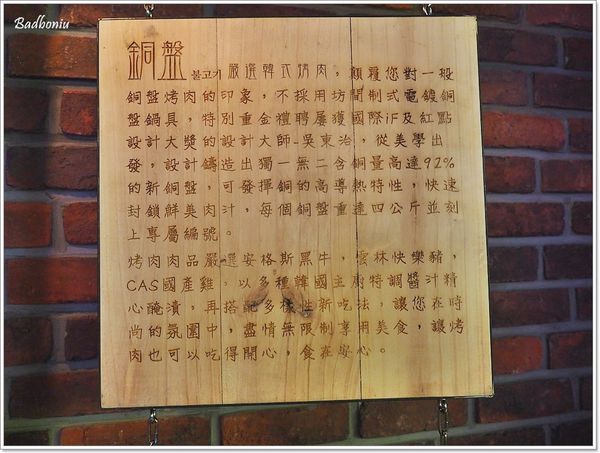 Badboniu
銅盤 불고기 嚴選韓式烤肉，顛覆您對一般
銅盤烤肉的印象，不採用坊間制式電鍍銅
盤鍋具，特別重金禮聘屢獲國際iF及紅點
設計大獎的設計大師-吳東治，從美學出
發，設計鑄造出獨一無二含銅量高達92%
的新銅盤，可發揮銅的高導熱特性，快速
封鎖鮮美肉汁，每個銅盤重達四公斤並刻
上專屬編號。
烤肉肉品嚴選安格斯黑牛，雲林快樂豬，
CAS國產雞，以多種韓國主廚特調醬汁精
心醃漬，再搭配多樣性新吃法，讓您在時
尚的氛圍中，盡情無限制享用美食，讓烤
肉也可以吃得開心，食在安心。